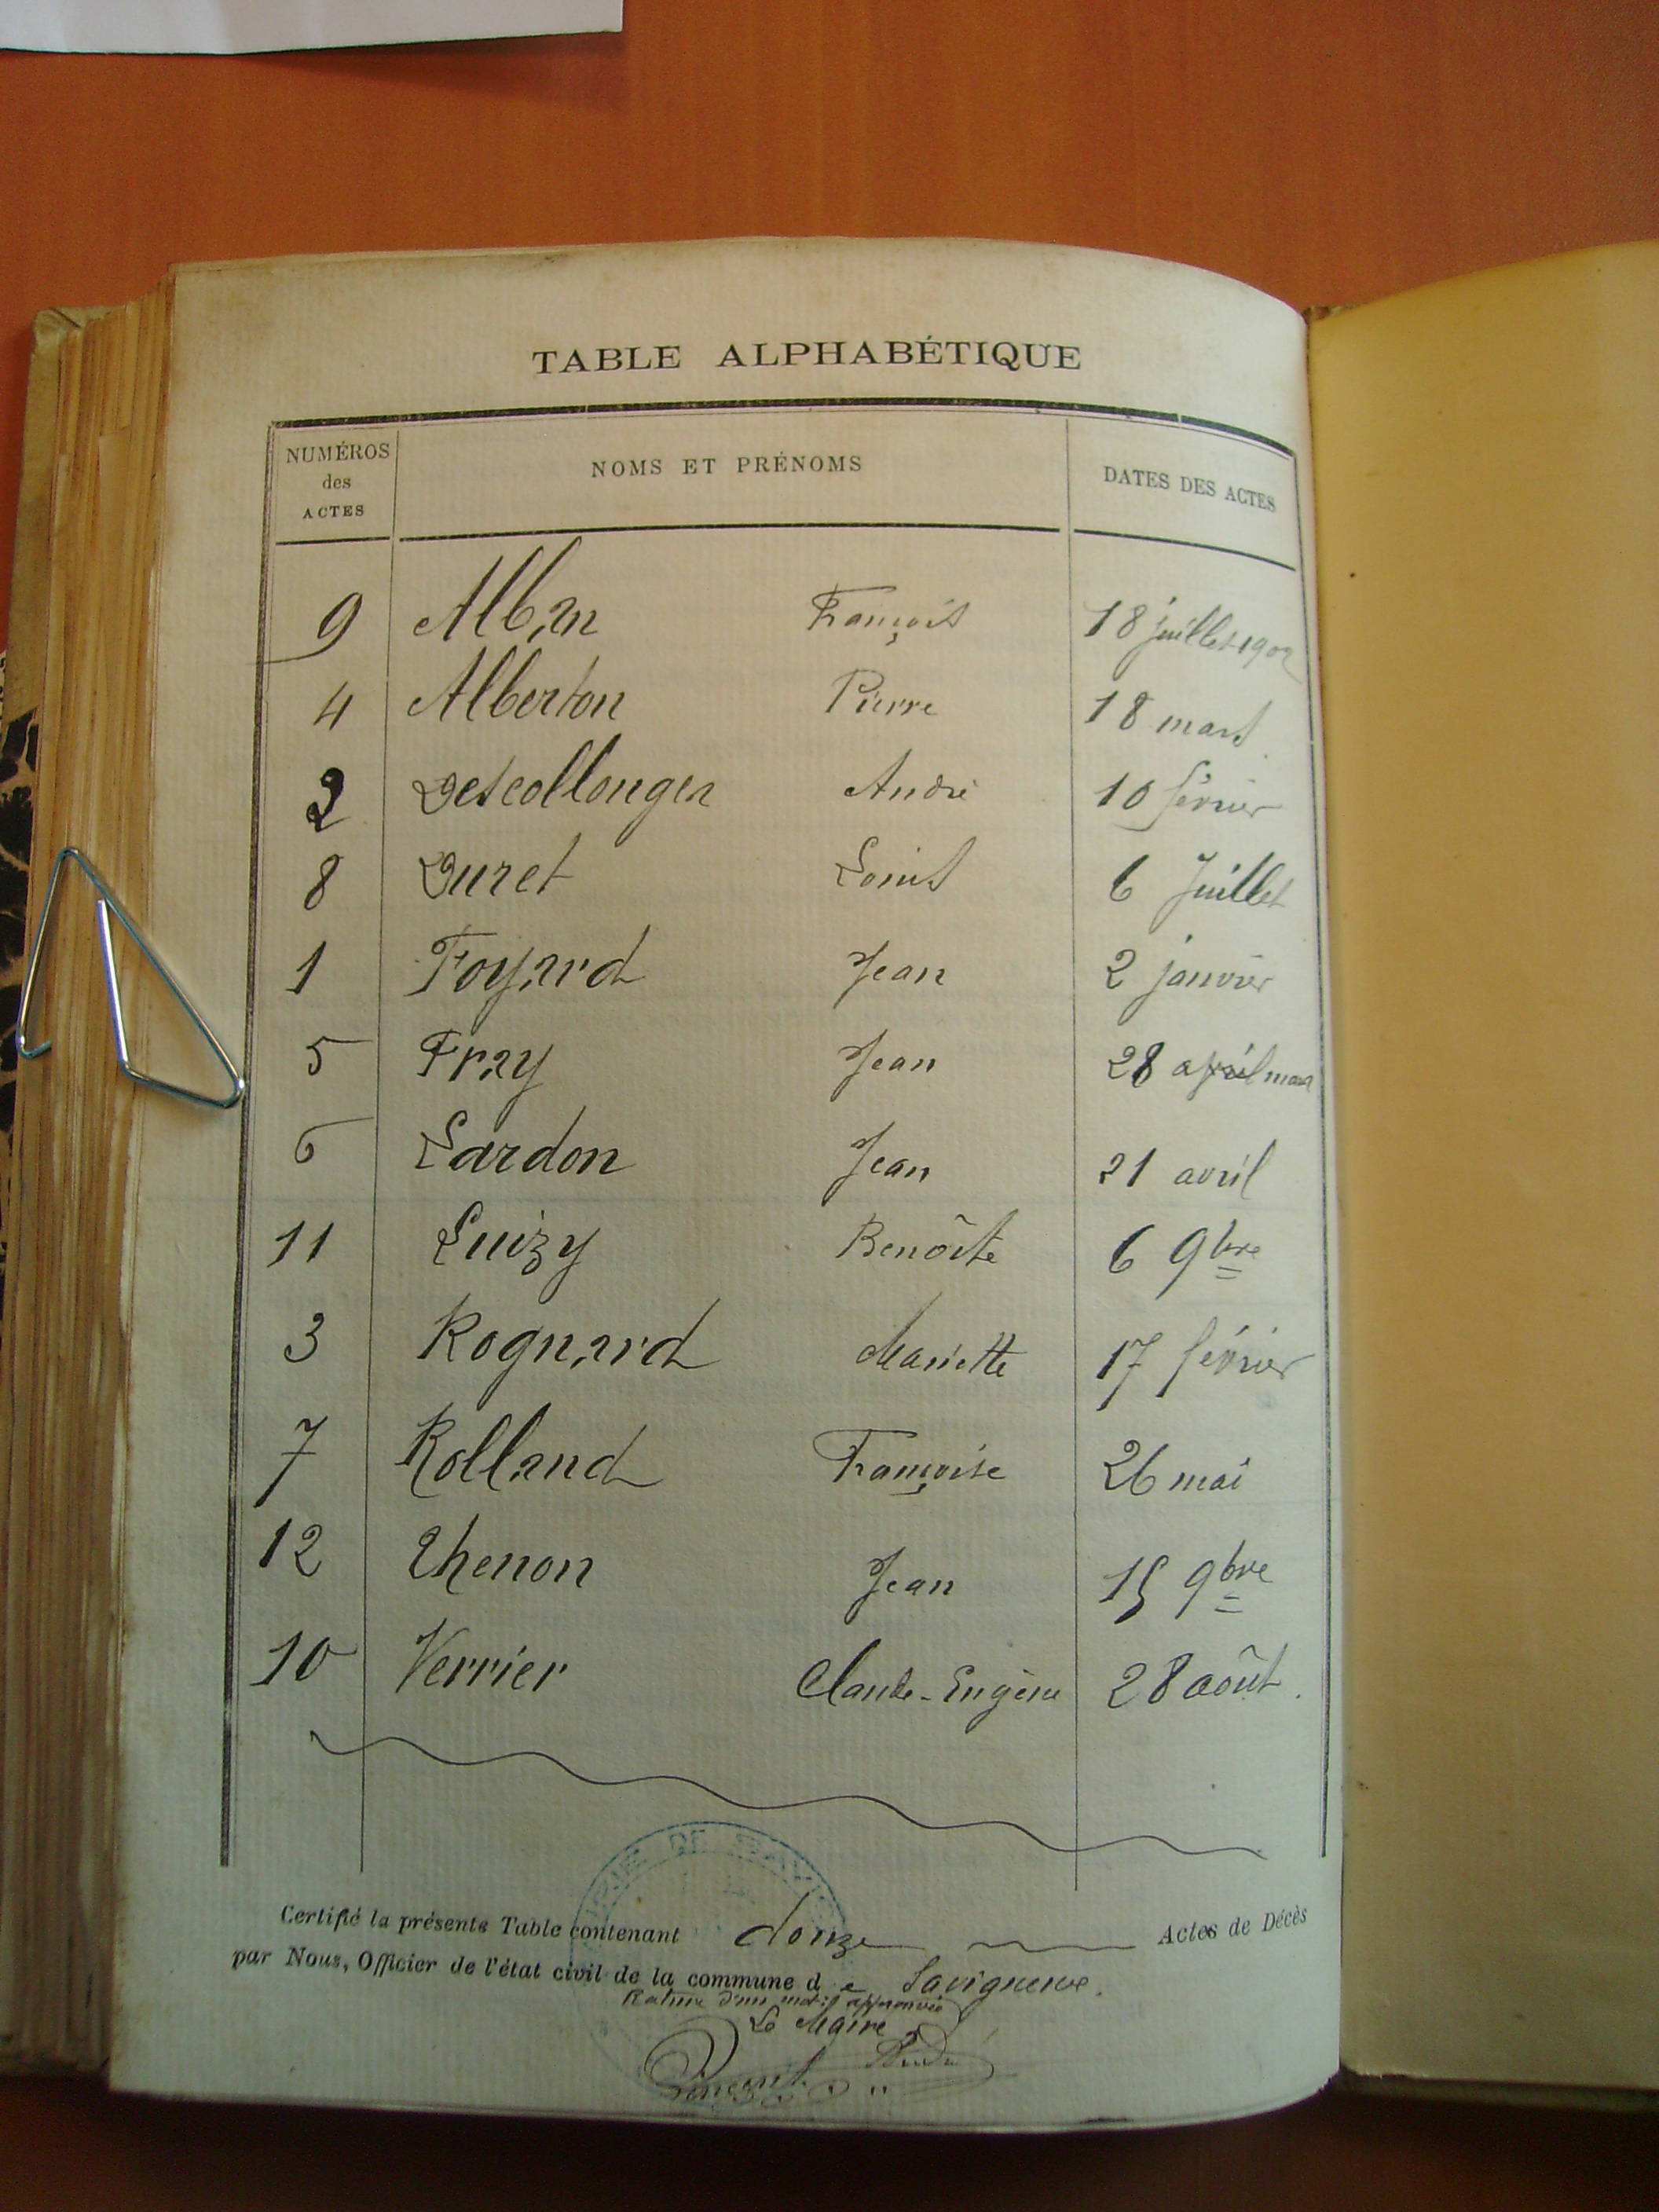 TABLE ALPHABÉTIQUE
NUMÉROS des ACTES NOMS ET PRÉNOMS DATES DES ACTES
9 Alban François 18 juillet 1902
4 Alberton Pierre 18 mars
2 Descollonges André 10 février
8 Duret Louis 6 Juillet
1 Foyard Jean 2 janvier
5 Fray Jean 28 avril mars
6 Lardon Jean 21 avril
11 Luizy Benôite 6 9bre
3 Rognard Mariette 17 février
7 Rolland Françoise 26 mai
12 Thenon Jean 15 9bre
10 Verrier Claude-Eugène 28 aôut
Certifié la présente Table contenant douze Actes de Décès
par Nous, Officier de l'état civil de la commune de Savigneux.
Rature d'un mot approuvée
Le Maire